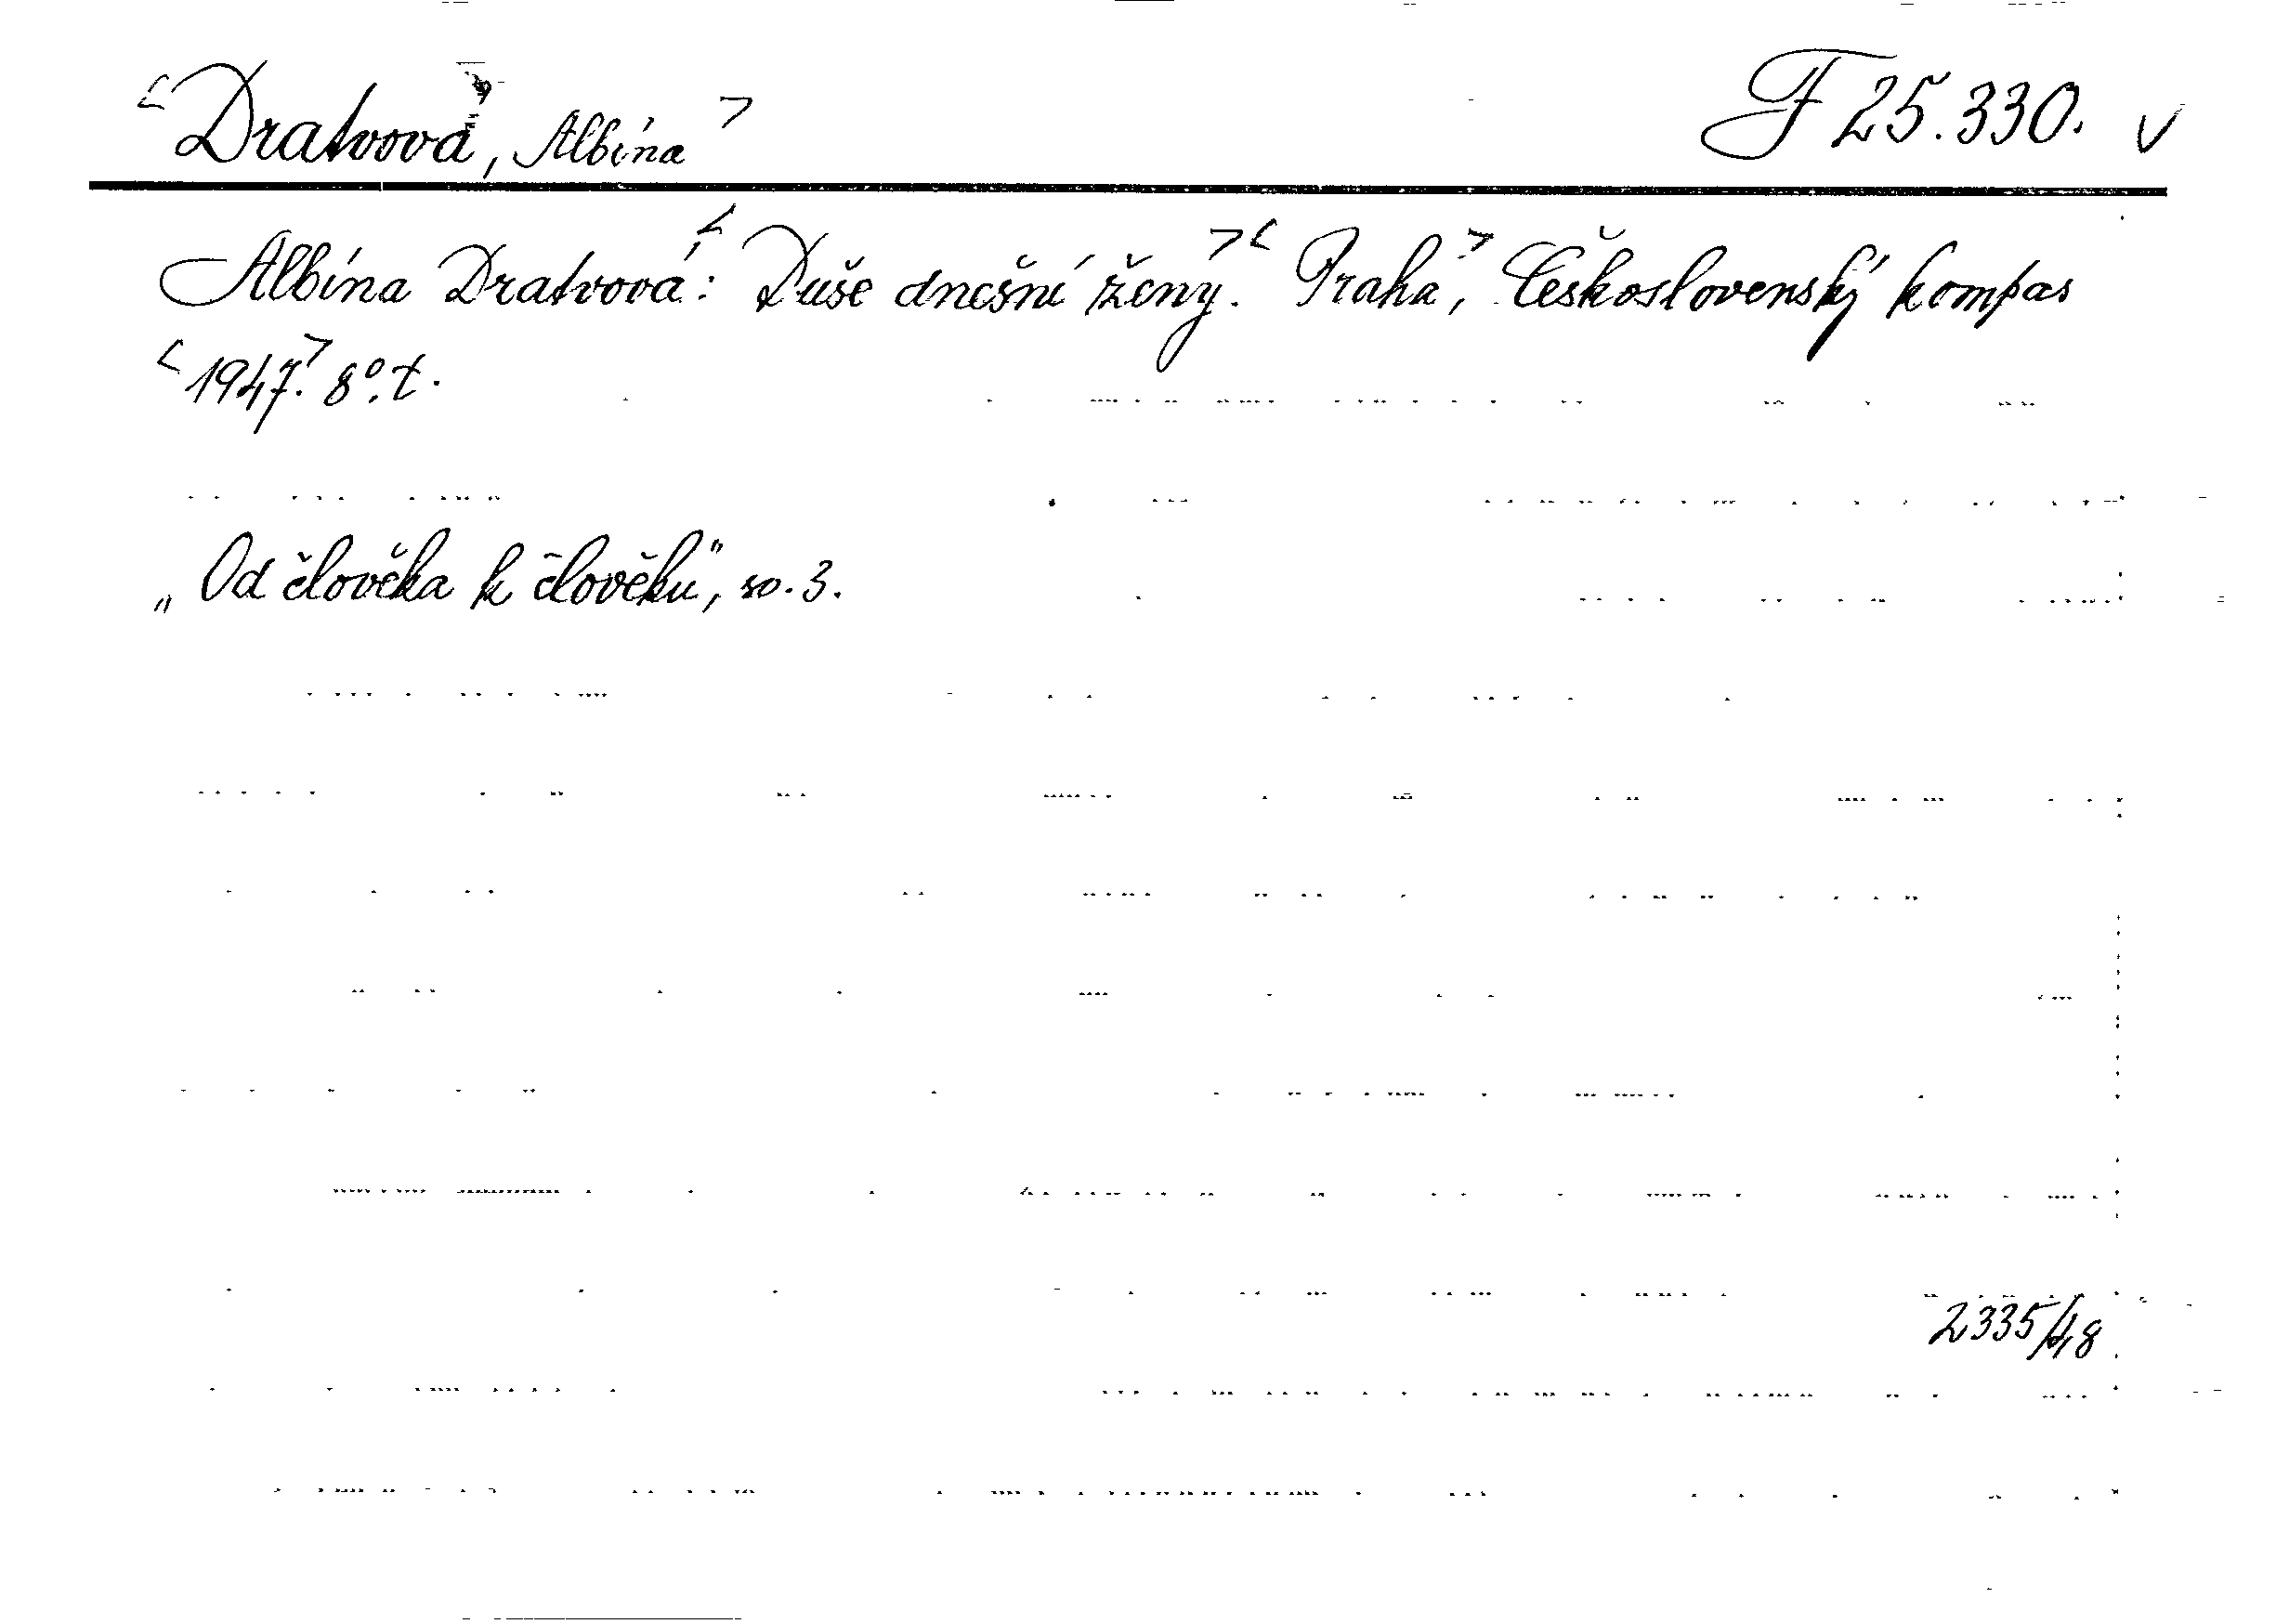 <Dratvová, Albina> F 25.330. v
Albina Dratvová: <Duše dnešní ženy.> <Praha,> Československý kompas
<1947.> 8°. t.
„Od člověka k člověku", sv. 3.
2335/48